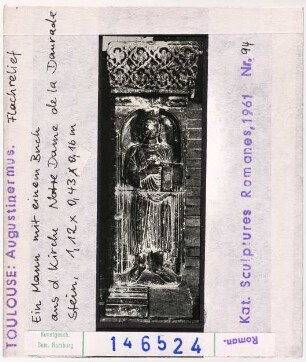 TOULOUSE: Augustinermus. Flachrelief
Ein Mann mit einem Buch
aus d. Kirche Notre Dame de la Daurade
Stein, 1,12 x 0,43 x 0,16 m
Kat. Sculptures Romanes, 1961 Nr. 94
Kunstgesch.
Sem. Hamburg
146524
Roman.